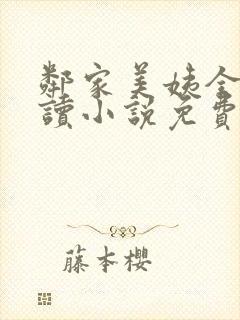 鄰家美姨全
讀小說免費
藤本櫻